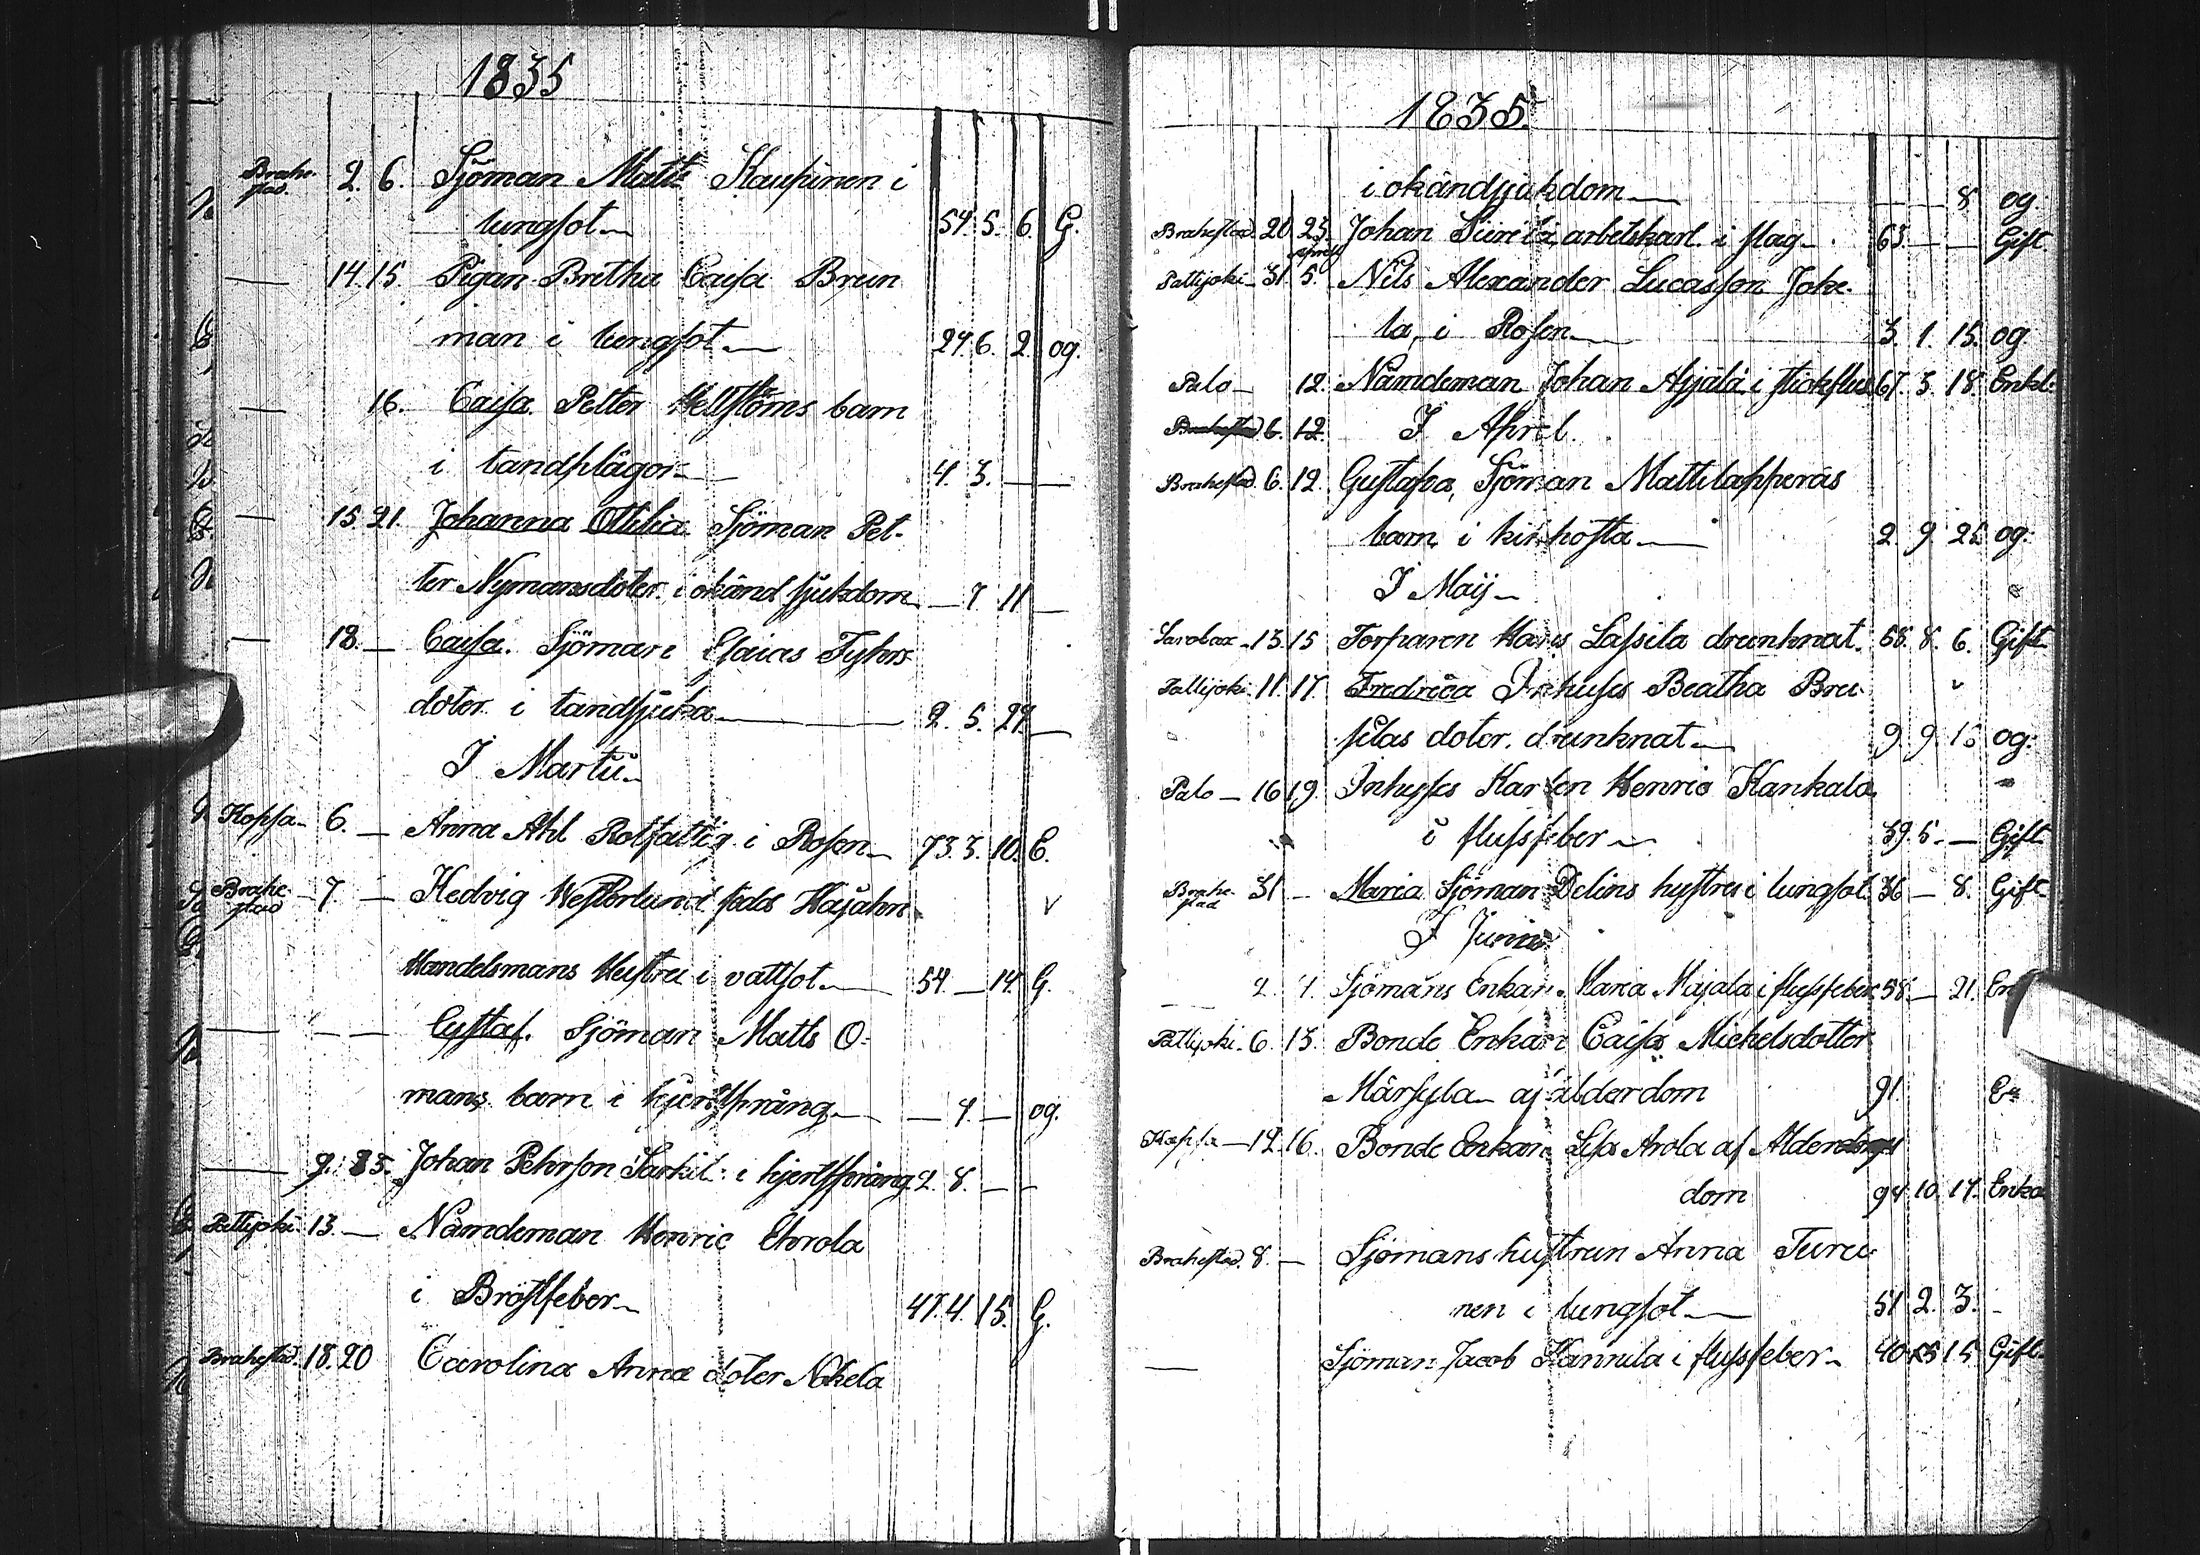 1835
Brahe-
stad. 2. 6. Sjöman Matts Kaupinen i
lungsot 54. 5. 6. G.
— 14. 15 Pigan Britha Caisa Brun
man i lungsot 24. 6. 2 og.
— 16. Caisa Petter Hellströms barn
i tandplågor 4. 3. — —
— 15. 21. Johanna Ottilia Sjöman Pet-
ter Nymans doter i okänd sjukdom — 7 11 —
— 18. — Caisa. Sjöman Esaias Tyhrs
doter i tandsjuka 2. 5. 27. —
I Martii
Kopsa 6. — Anna Ahl Rotfattig i Rosen 73. 3. 10. E.
Brahe-
stad 7. — Hedvig Westerlund föda
Handelsmans Hustru i vattsot 54. — 14. G.
— — — Gustaf. Sjöman Matts O-
mans barn i hjertsprång — 4. — og.
— 9. 25. Johan Pehrson i hjertsprång 2. 8. — —
Pattijoki 13. — Nämdeman Henric Ehrola
i Bröstfeber 47. 4. 15. G.
Brahestad. 18. 20 Carolina Anna doter
1835.
i okänd sjukdom — — 8 og.
Brahestad 20 23. Johan arbetskarl i slag 63. — — Gift
April
Pattijoki 31 5. Nils Alexander Lucasson Joke-
la, i Rosen 3. 1. 15. og
Palo 12. Nämdeman Johan Äijälä i stickfluss 67. 3. 18. Enkl.
Brahestad 6. 12. I Aprel.
Brahestad. 6. 12. Gustafva, Sjöman Matts
barn i kikhosta 2. 9. 25 og.
I Maij
13. 15 Torparen Hans Lassila drunknat. 58. 8. 6. Gift
Pattijoki 11. 17. Fredrica Inhuses Beatha Bru-
silas doter. drunknat 9. 9. 15 og.
Palo — 16 19. Inhyses Karlen Henric Kankala
i flussfeber 39. 5. — Gift
Brahe-
stad 31 — Maria Sjöman Delins hustru i lungsot 36 — 8. Gift
I Junii
— 2. 4. Sjömans Enkan Maria Majala i flussfeber 58. — 21.
Pattijoki. 6. 13. Bonde Enkan Caisa Michelsdotter
Härsyla af ålderdom 91. Ea
Kopsa — 12. 16. Bonde Enkan Lisa Arola af Alder
dom 94. 10. 17. Enka
Brahestad. 8. — Sjömans hustrun Anna Turu-
nen i lungsot 51 2. 3. -
— Sjöman Jacob Kannila i flussfeber 40 15 Gift